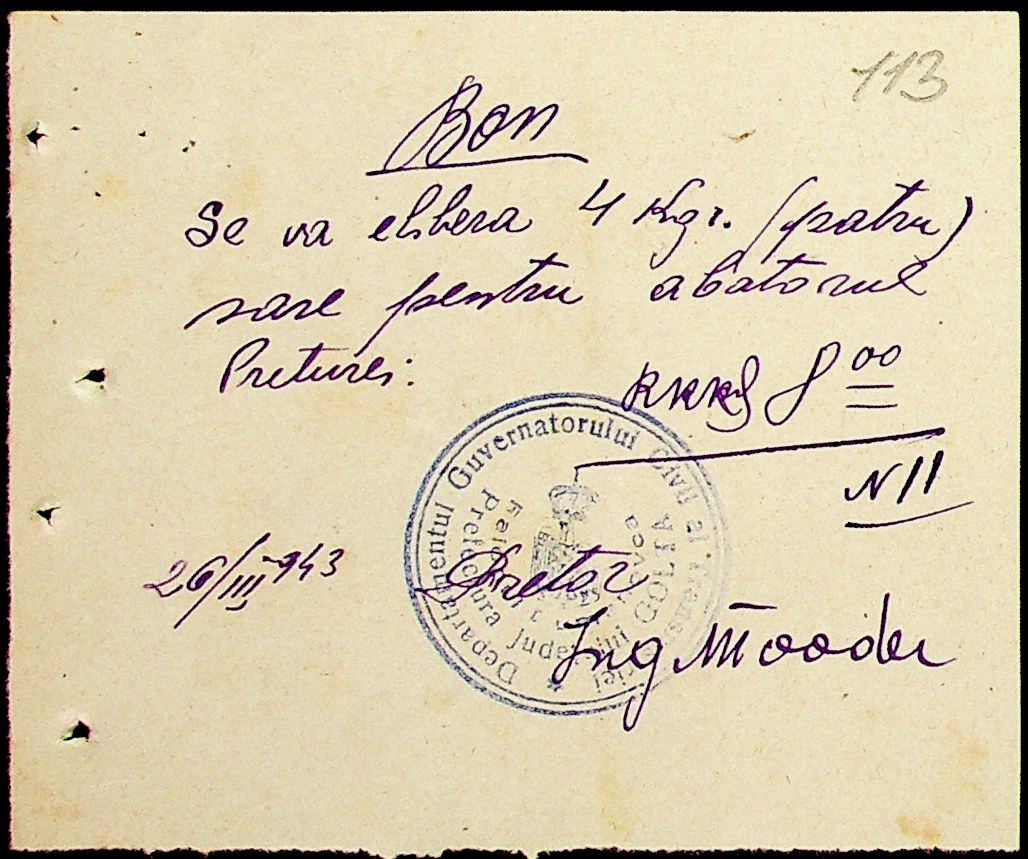 113
Bon
Se va elibera 4 Kgr. (patru)
sare pentru abatorul
Preturei.
8 00
N 11
26/III 943
Pretor
Ing
Departamentul Guvernatorului Civil al Transnistriei
Prefectura Județului GOLTA